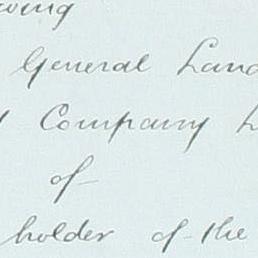 General Land
Company L
of
holder of the